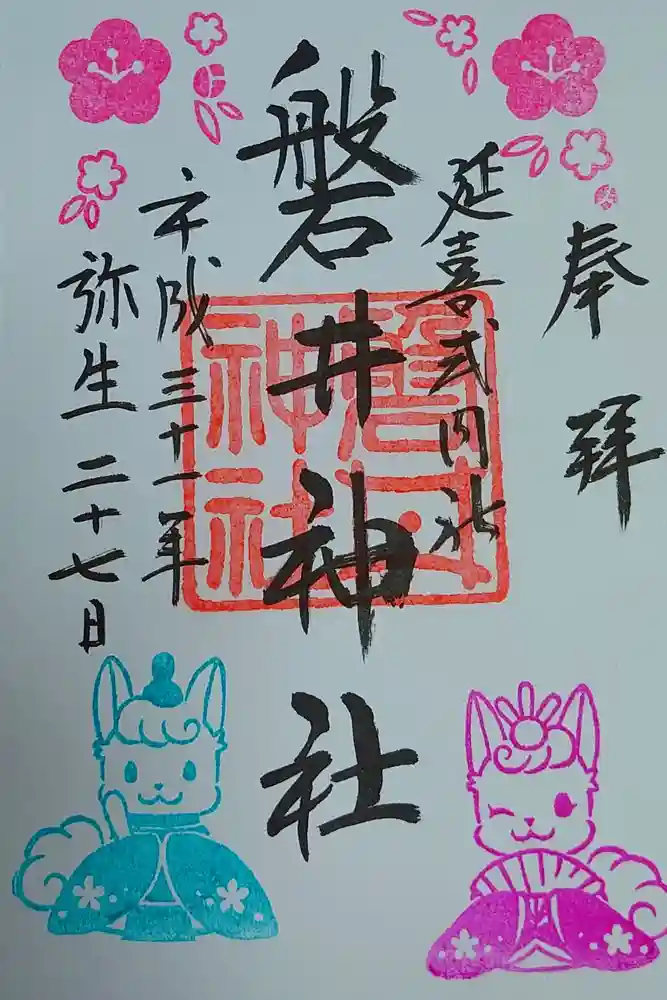 奉拝
延喜式内社
磐井神社
平成三十一年
弥生二十七日
磐井
神社